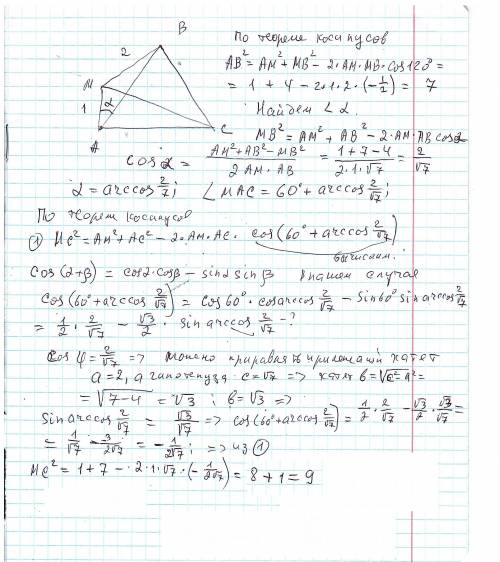 B
По теореме косинусов
2
AB² = AM² + MB² - 2·AM·MB·cos120° =
M
= 1 + 4 - 2·1·2·(-1/2) = 7
1
α
Найдем ∠α.
A
C
MB² = AM² + AB² - 2·AM·AB cosα
cosα = (AM² + AB² - MB²)/(2AM·AB) = (1+7-4)/(2·1·√7) = 2/√7
α = arccos 2/√7; ∠MAC = 60° + arccos 2/√7;
По теорем косинусов
① MC² = AM² + AC² - 2·AM·AC· cos(60° + arccos 2/√7)
вычислим.
cos(α+β) = cosα·cosβ - sinα sinβ В нашем случае
cos(60° + arccos 2/√7) = cos60°·cosarccos 2/√7 - sin60° sin arccos 2/√7
= 1/2 · 2/√7 - √3/2 · sin arccos 2/√7 - ?
cos φ = 2/√7 => можно прировнять прилежащий катет
a = 2, а гипотенуза - c = √7 => катет b = √(c²-a²) =
= √(7-4) = √3; b = √3 =>
sin arccos 2/√7 = √3/√7 => cos(60° + arccos 2/√7) = 1/2 · 2/√7 - √3/2 · √3/√7 =
= 1/√7 - 3/2√7 = - 1/2√7; => из ①
MC² = 1 + 7 - 2·1·√7·(-1/2√7) = 8 + 1 = 9